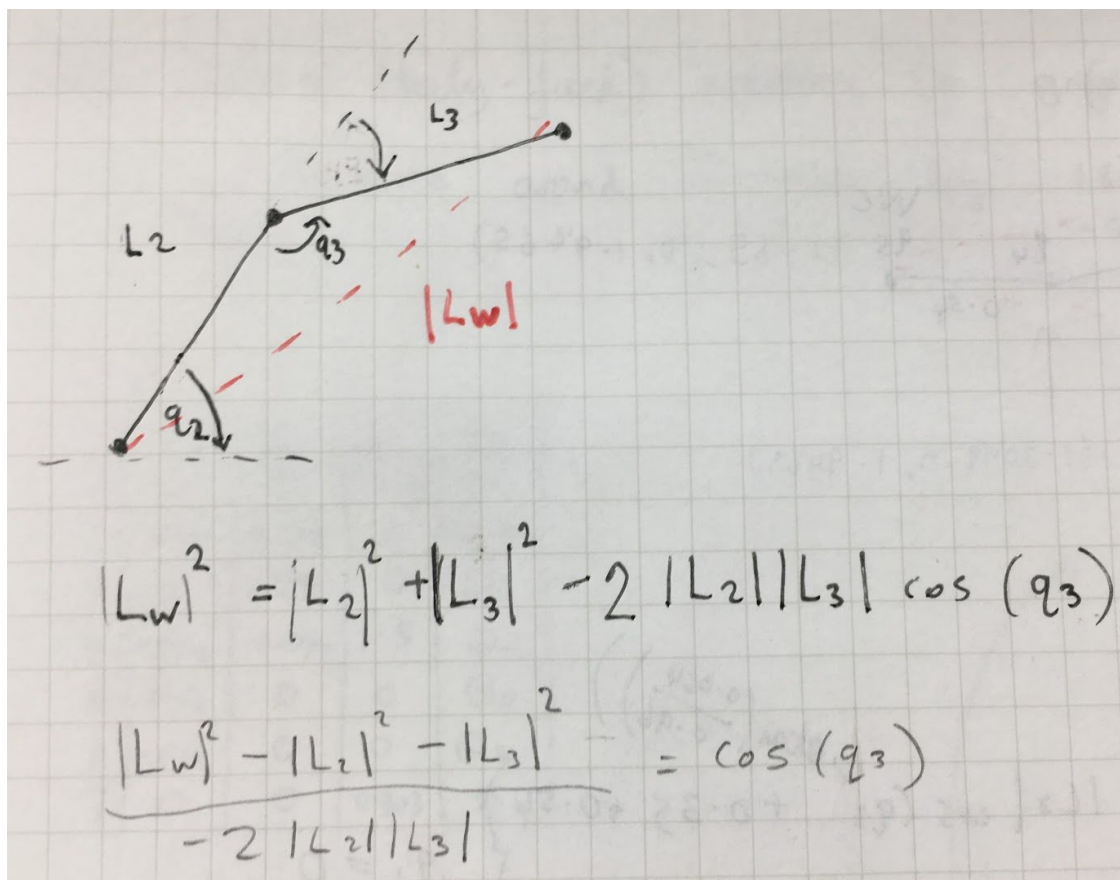 L3
L2
q3
|Lw|
q2
|Lw|² = |L2|² + |L3|² - 2 |L2||L3| cos (q3)
|Lw|² - |L2|² - |L3|² = cos (q3)
- 2 |L2||L3|